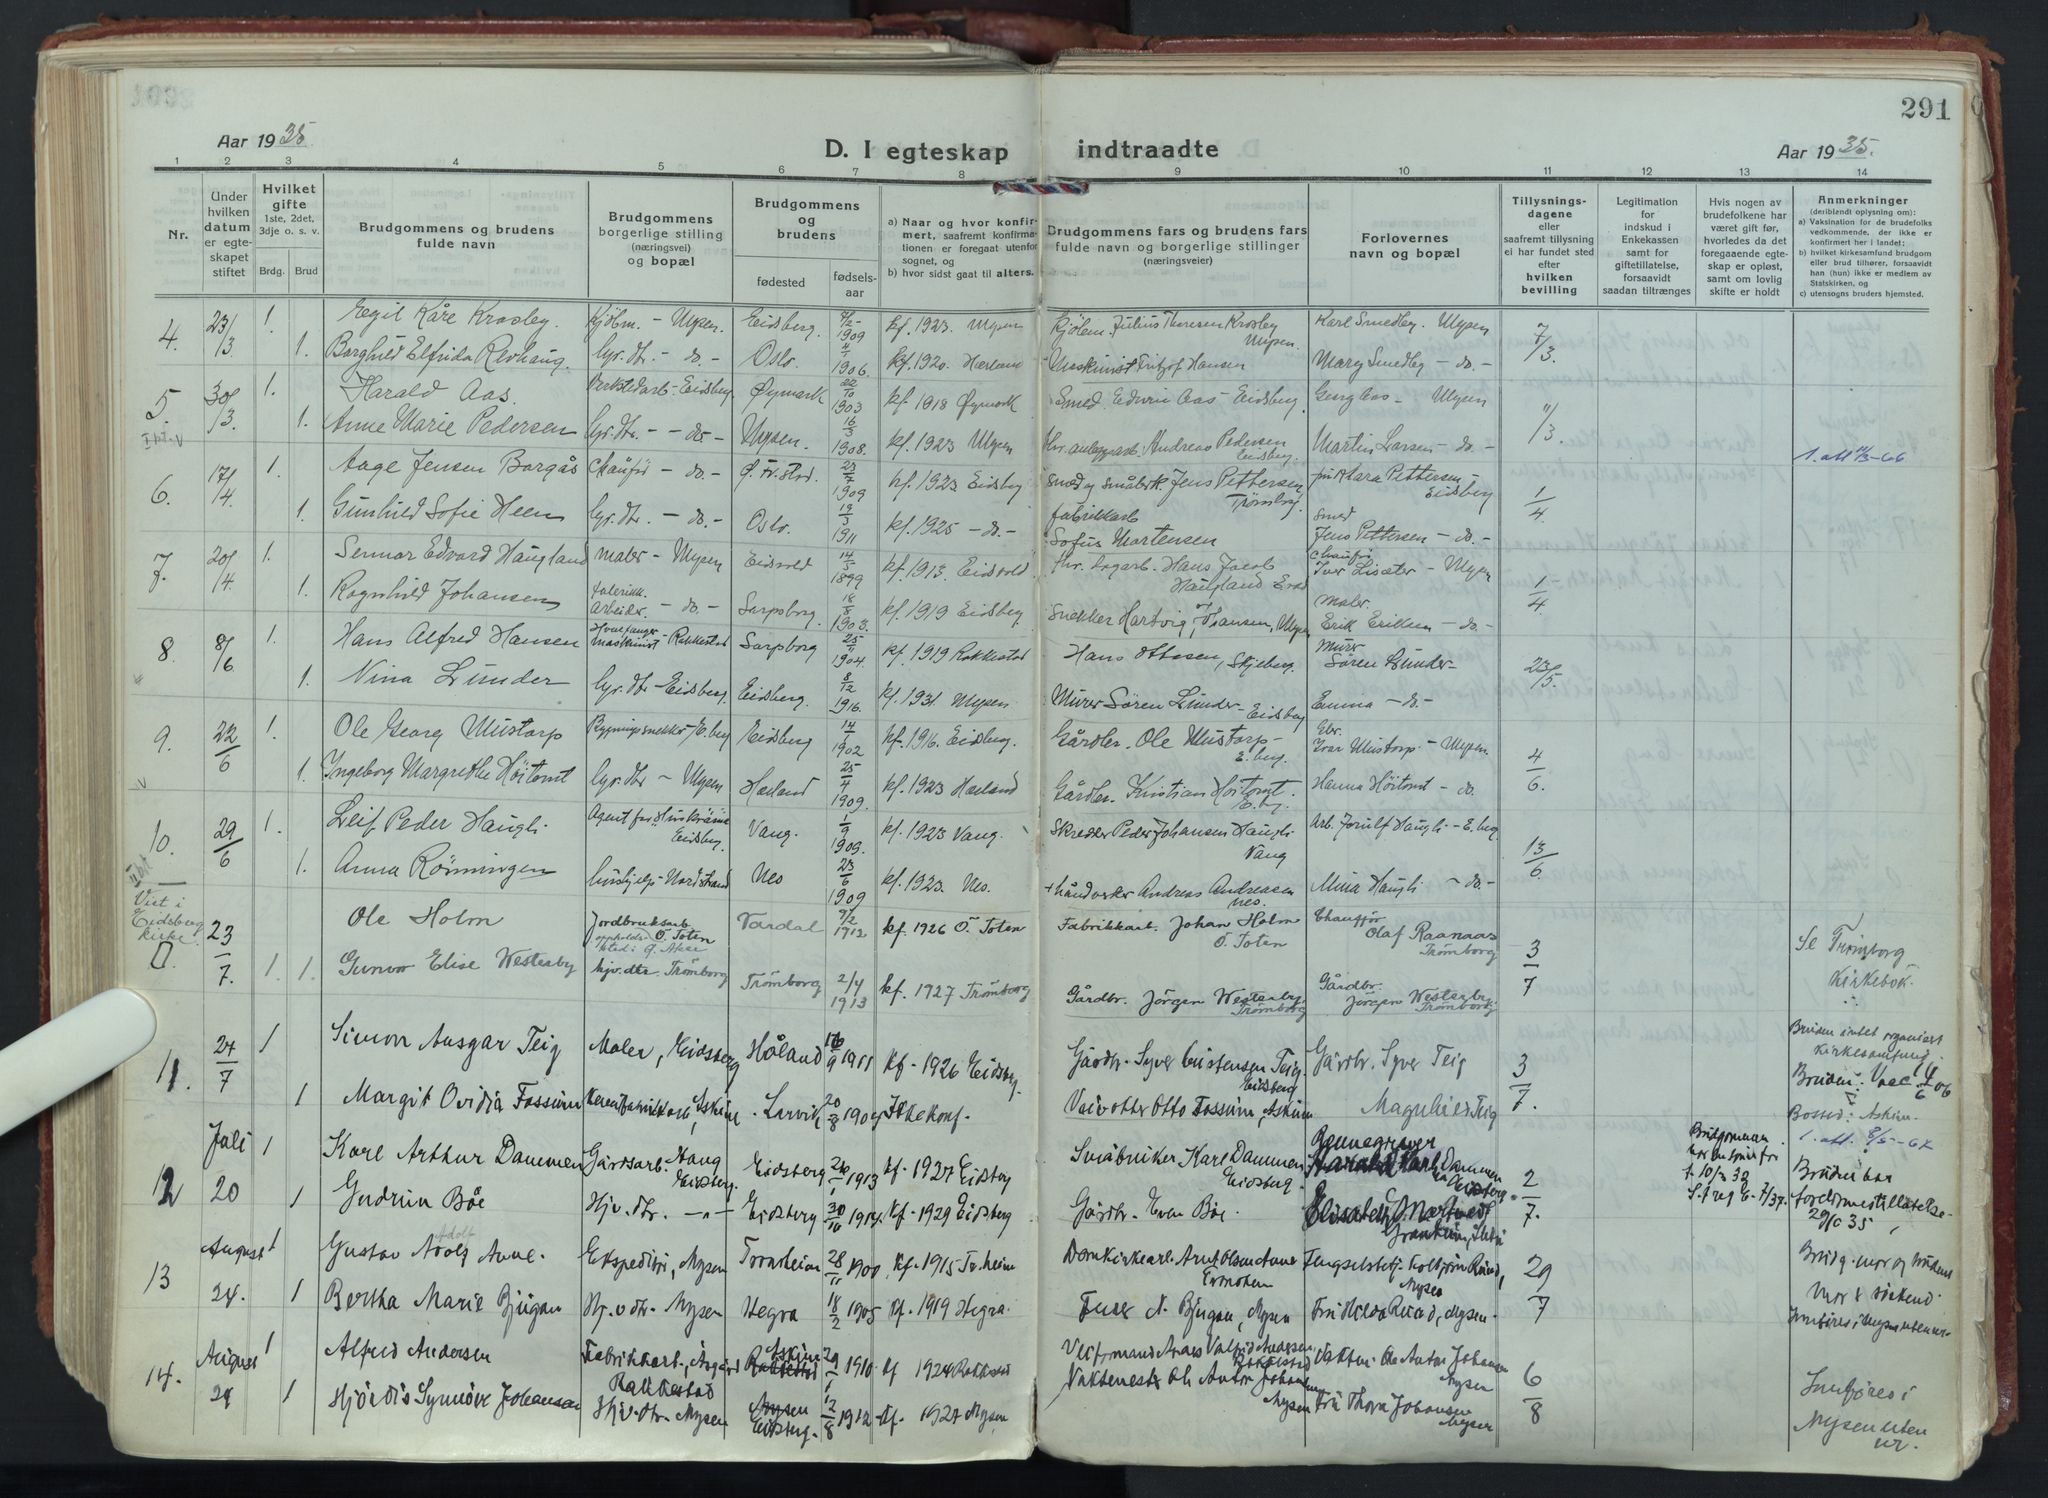 291
Aar 1935.
D. I egteskap indtraadte
Aar 1935.
1 2 3 4 5 6 7 8 9 10 11 12 13 14
Nr.
Under hvilken datum er egteskapet stiftet
Hvilket gifte
1ste, 2det, 3dje o. s. v.
Brdg. Brud
Brudgommens og brudens fulde navn
Brudgommens borgerlige stilling (næringsvei) og bopæl
Brudgommens og brudens
fødested fødselsaar
a) Naar og hvor konfirmert, saafremt konfirmationen er foregaat utenfor sognet, og
b) hvor sidst gaat til alters.
Brudgommens fars og brudens fars fulde navn og borgerlige stillinger (næringsveier)
Forlovernes navn og bopæl
Tillysningsdagene eller saafremt tillysning ei har fundet sted efter hvilken bevilling
Legitimation for indskud i Enkekassen samt for giftetillatelse, forsaavidt saadan tiltrænges
Hvis nogen av brudefolkene har været gift før, hvorledes da det foregaaende egteskap er opløst, samt om lovlig skifte er holdt
Anmerkninger
(deriblandt oplysning om):
a) Vaksination for de brudefolks vedkommende, der ikke er konfirmert her i landet;
b) hvilket kirkesamfund brudgom eller brud tilhører, forsaavidt han (hun) ikke er medlem av Statskirken, og
c) utensogns bruders hjemsted.
4. 23/3 1. Egil Kåre Krosby. Kjölm. - Mysen. Eidsberg. 1909 kf. 1923. Mysen Kjölm. Julius Theresen Krosby Mysen. Karl Smedby. Mysen 7/3.
1. Borghild Elfrida Revhaug. Gr. dtr. - do - Oslo. 1906. kf. 1920. Hærland Maskinist Fritjof Hansen Mary Smedby - do. -
5. 30/3. 1. Harald Aas. Verkstedarb. - Eidsberg Øymark 22/10 1903 kf. 1918 Øymark Smed. Edvin Aas - Eidsberg. Georg Aas - Mysen 11/3
1. Anne Marie Pedersen Gr. dtr. - do - Mysen. 16/3 1908. kf. 1923 Mysen Andreas Pedersen Eidsberg. Martin Larsen - do. - 1. att
6. 17/4 1. Aage Jensen Borgås Chauför - do. - Ø. Fr.stad. 1909 kf. 1923 Eidsberg Smed og småbrk. Jens Pettersen Trömborg fru Klara Pettersen Eidsberg 1/4
1. Gunhild Sofie Heen Gr. dtr. - do. - Oslo. 19/3 1911 kf. 1925 - do. - Fabrikkarb Sofus Martensen Smed Jens Pettersen - do. -
7. 20/4 1. Sennar Edvard Haugland Maler - Mysen Eidsvold 14/5 1899 kf. 1913. Eidsvold Hans Jacob Haugland Chauför Iver Lisæter - Mysen 1/4
1. Ragnhild Johansen arbeider. - do - Sarpsborg. 18/8 1903. kf. 1919 Eidsberg. Snekker Hartvig Hansen, Mysen Maler. Erik Eriksen - do -
8. 8/6 1. Hans Alfred Hansen Hvalfanger maskinist - Rakkestad Sarpsborg 25/11 1904. kf. 1919 Rakkestad Hans Ottesen, Skjeberg. Murer Sören Lunder - 23/5.
1. Nina Lunder Gr. dtr - Eidsberg. Eidsberg. 8/12 1916. kf. 1931 Mysen. Murer Sören Lunder - Eidsberg Emma - do -
9. 22/6 1. Ole Georg Mustorp Bygningssnekker / E.berg Eidsberg 14/1 1902 kf. 1916. Eidsberg. Gårdbr. Ole Mustorp - E.berg. Gbr. Ivar Mustorp. - Mysen. 4/6.
1. Ingeborg Margrethe Höitomt Gr. dtr - Mysen Hærland 25/4 1909. kf. 1923 Hærland Gårdbr. Kristian Höitomt. E.berg. Hanna Höitomt - do.
10. 29/6 1. Leif Peder Haugli. Agent for Eidsberg. Vang. 1/9 1909. kf. 1923 Vang. Skredder Peder Johansen Haugli Vang Arb. Jorulf Haugli - E.berg 13/6.
1. Anna Rönningen hushjelp - Nordstrand Nes 23/6 1909 kf. 1923. Nes. håndverker Andreas Andreasen Nes. Mina Haugli - do. -
Viet i Eidsberg kirke. 0. 23/7. 1. Ole Holm Jordbruksarb. Ö. Toten Vardal 1912 kf. 1926 Ö. Toten Fabrikkarb. Johan Holm Ö. Toten Chauffør Olaf Raanaas Trömborg 3/7 Se Trömborg kirkebok.
1. Gunvor Elise Westerby hjv. dtr. Trömborg Trömborg 2/4 1913 kf. 1927 Trömborg Gårdbr. Jörgen Westerby Trömborg Gårdbr. Jörgen Westerby. Trömborg
11. 27/7 1 Simon Ansgar Teig Maler, Eidsberg Höland 16/9 1911 kf. 1926 Eidsberg. Gårdbr. Syver Cristensen Teig Eidsberg Gårdbr. Syver Teig 3/7. Bruden intet organisert kirkesamfund.
1 Margit Ovidia Fossum Askim. Larvik 20/8 1904 Ikke konf. Otto Fossum, Askim Magnhild Teig Bruden: Vacc
Bosted: Askim.
12 Juli 20 1 Karl Arthur Dammen Gårdsarb. Haug Eidsberg. Eidsberg 1913 kf. 1927 Eidsberg Småbruker Karl Dammen Eidsberg. Dammen Eidsberg. 2/7. 1. att.
1 Gudrun Böe Hjv. dtr. -"- Eidsberg 30/10 1914. kf. 1929 Eidsberg Gårdbr. Even Böe. Bruden har
13 August 24. 1 Gustav Adolf Aune. Ekspeditör, Mysen Trondheim 28/11 1900 kf. 1915 Tr.heim Trondhem Fengselsbetj. Torbjörn Ruud, Mysen 29/7 Brudg. mor og brudens mor søskend.
1 Bertha Marie Bjugan Hj.v. dtr. Mysen Hegra 18/2 1905 kf. 1919 Hegra. N. Bjugan, Mysen Fru Hilda Ruud, Mysen. Innføres i Mysen
14. August 24 1 Alfred Andersen Fabrikkarb., Rakkestad Askim 29/1 1910 kf 1924 Rakkestad Rakkestad Ole Anton Johansen Mysen 6/8 Innføres i Mysen
1 Hjördis Synnöve Johansen Hjv. dtr. Mysen Mysen Eidsberg. 12/8 1912 kf. 1927 Mysen Ole Anton Johansen Mysen Fru Thora Johansen Mysen